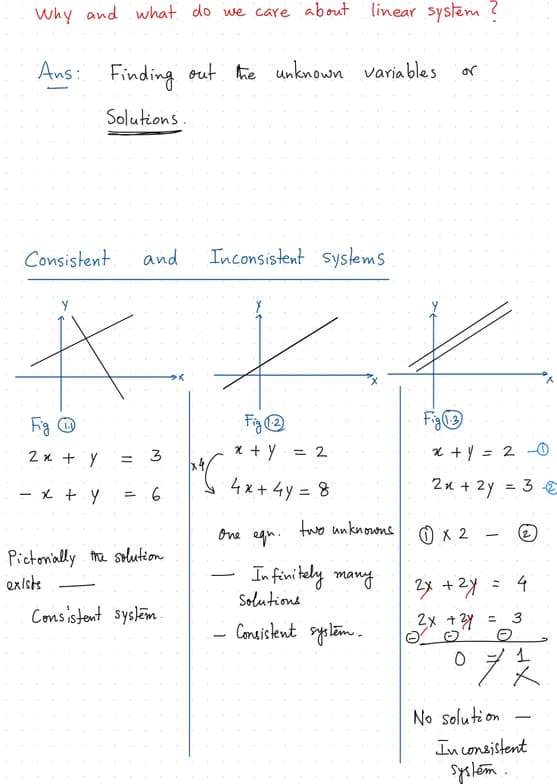 Why and what do we care about linear system ?
Ans: Finding out the unknown variables or
Solutions.
Consistent and Inconsistent systems
y
x
Fig 1.1
2x + y = 3
- x + y = 6
Pictorially the solution
exists —
Consistent system.
y
x
Fig 1.2
x + y = 2
x4
4x + 4y = 8
One eqn. two unknowns
— Infinitely many
Solutions
— Consistent system.
y
x
Fig 1.3
x + y = 2 — ①
2x + 2y = 3 — ②
① x 2 — ②
2x + 2y = 4
2x + 2y = 3
⊖ ⊖ ⊖
0 ≠ 1
No solution —
Inconsistent
system.